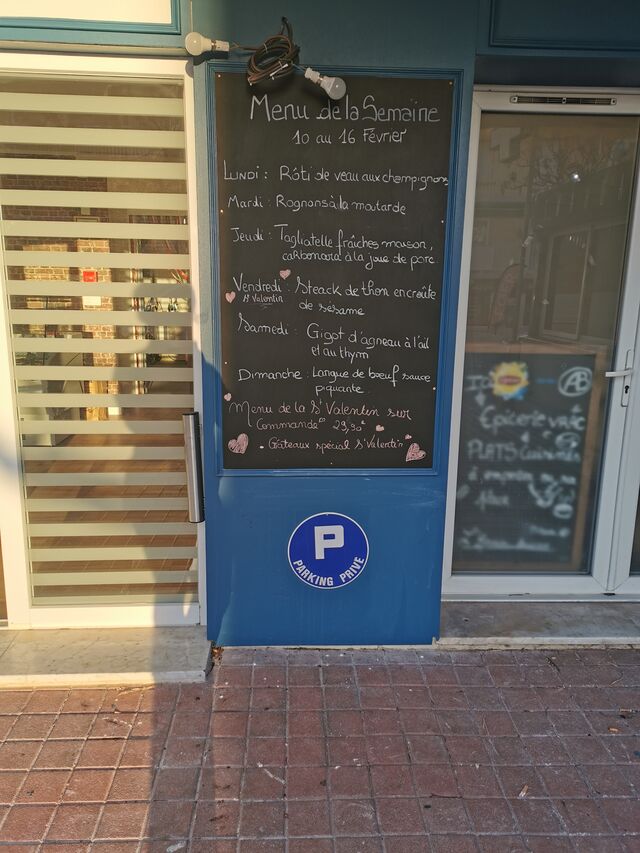 Menu de la Semaine
10 au 16 Février
Lundi : Rôti de veau aux champignons
Mardi : Rognons à la moutarde
Jeudi : Tagliatelle fraîches maison,
carbonara à la joue de porc.
Vendredi : Steack de thon en croûte
St Valentin
de sésame
Samedi : Gigot d'agneau à l'ail
et au thym
Dimanche : Langue de bœuf sauce
piquante
Menu de la St Valentin sur
Commande 29,90€
Gâteaux spécial St Valentin
P
PARKING PRIVE
AB
Epicerie
PLATS Cuisinés